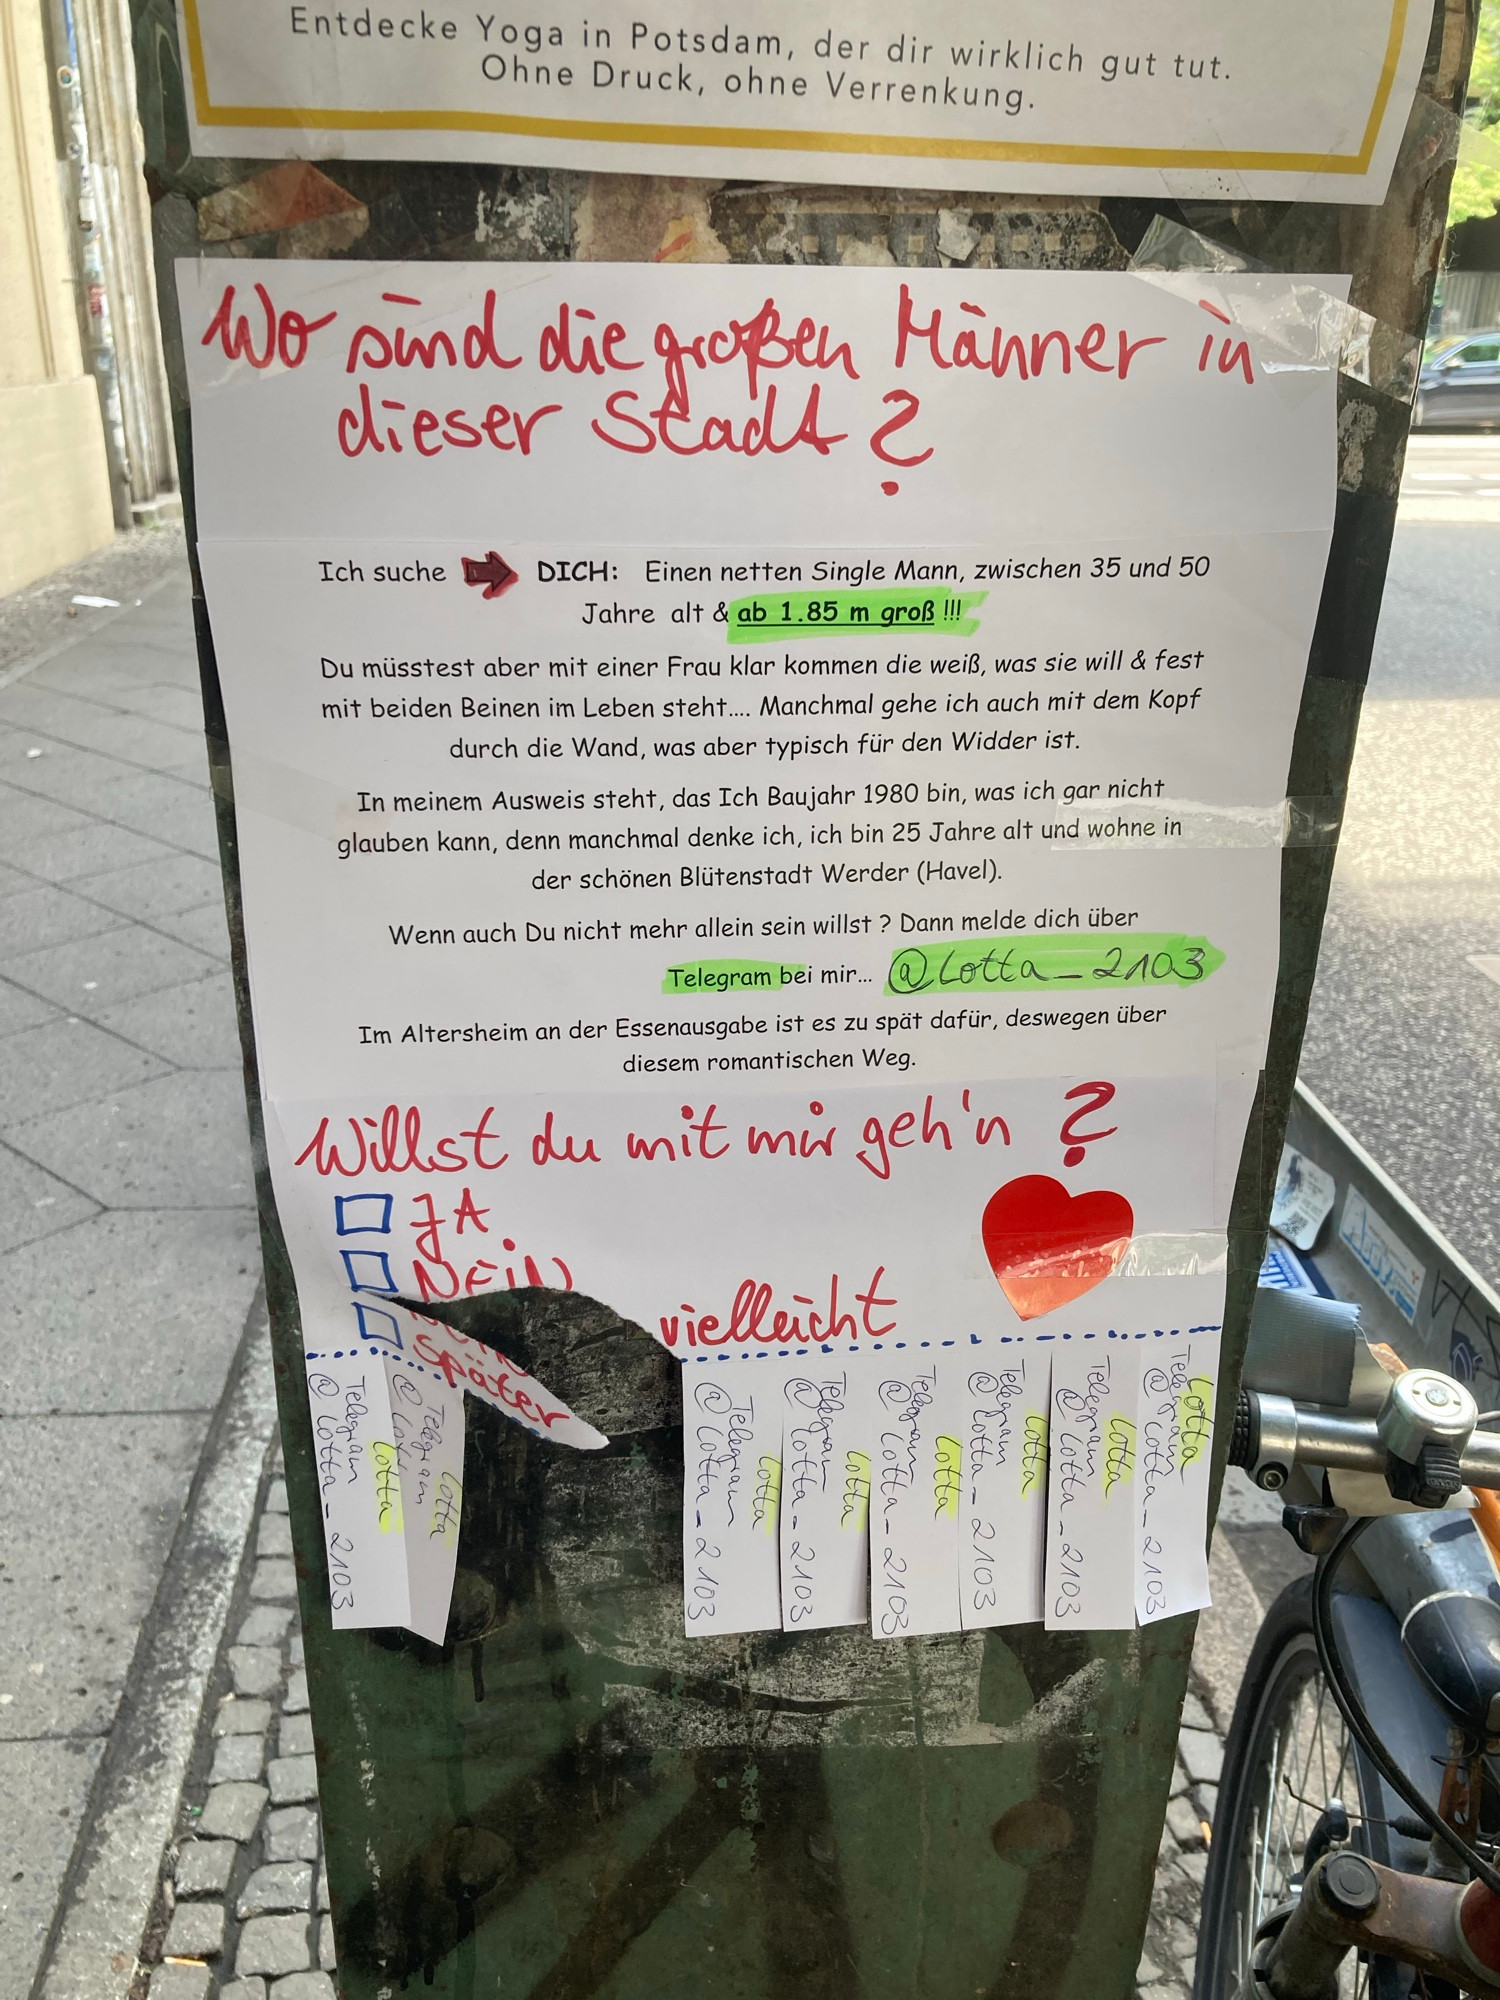 Entdecke Yoga in Potsdam, der dir wirklich gut tut.
Ohne Druck, ohne Verrenkung.
Wo sind die großen Männer in
dieser Stadt?
Ich suche DICH: Einen netten Single Mann, zwischen 35 und 50
Jahre alt & ab 1.85 m groß !!!
Du müsstest aber mit einer Frau klar kommen die weiß, was sie will & fest
mit beiden Beinen im Leben steht.... Manchmal gehe ich auch mit dem Kopf
durch die Wand, was aber typisch für den Widder ist.
In meinem Ausweis steht, das Ich Baujahr 1980 bin, was ich gar nicht
glauben kann, denn manchmal denke ich, ich bin 25 Jahre alt und wohne in
der schönen Blütenstadt Werder (Havel).
Wenn auch Du nicht mehr allein sein willst ? Dann melde dich über
Telegram bei mir... @Lotta_2103
Im Altersheim an der Essenausgabe ist es zu spät dafür, deswegen über
diesem romantischen Weg.
Willst du mit mir geh'n ?
JA
NEiN
vielleicht
Später
Lotta
Telegram
@Lotta_2103
Lotta
Telegram
Lotta
Telegram
@Lotta_2103
Lotta
Telegram
@Lotta_2103
Lotta
Telegram
@Lotta_2103
Lotta
Telegram
@Lotta_2103
Lotta
Telegram
@Lotta_2103
Lotta
Telegram
@Lotta_2103